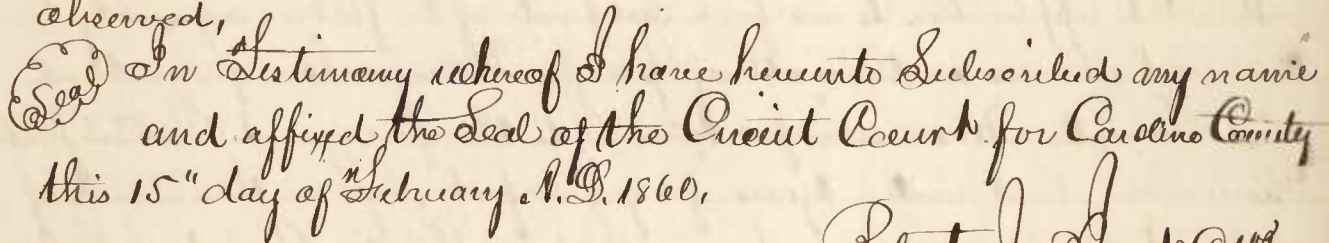 observed,
Seal In Testimony whereof I have hereunto Subscribed my name
and affixed the Seal of the Circuit Court for Caroline County
this 15" day of February A.D. 1860.